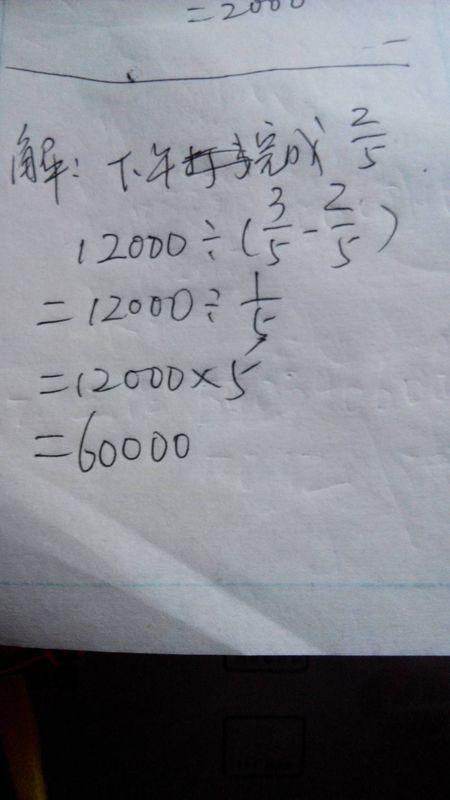 =2000
解：下午完成 2/5
12000÷(3/5-2/5)
=12000÷1/5
=12000×5
=60000